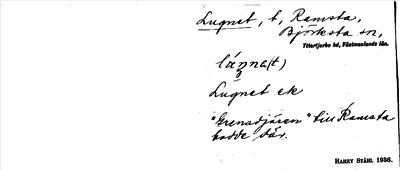 Lugnet, t, Ramsta,
Björksta sn,
Yttertjurbo hd, Västmanlands län.
Lugnet ek
"Grenadjären" till Ramsta
bodde där.
HARRY STÅHL 1936.